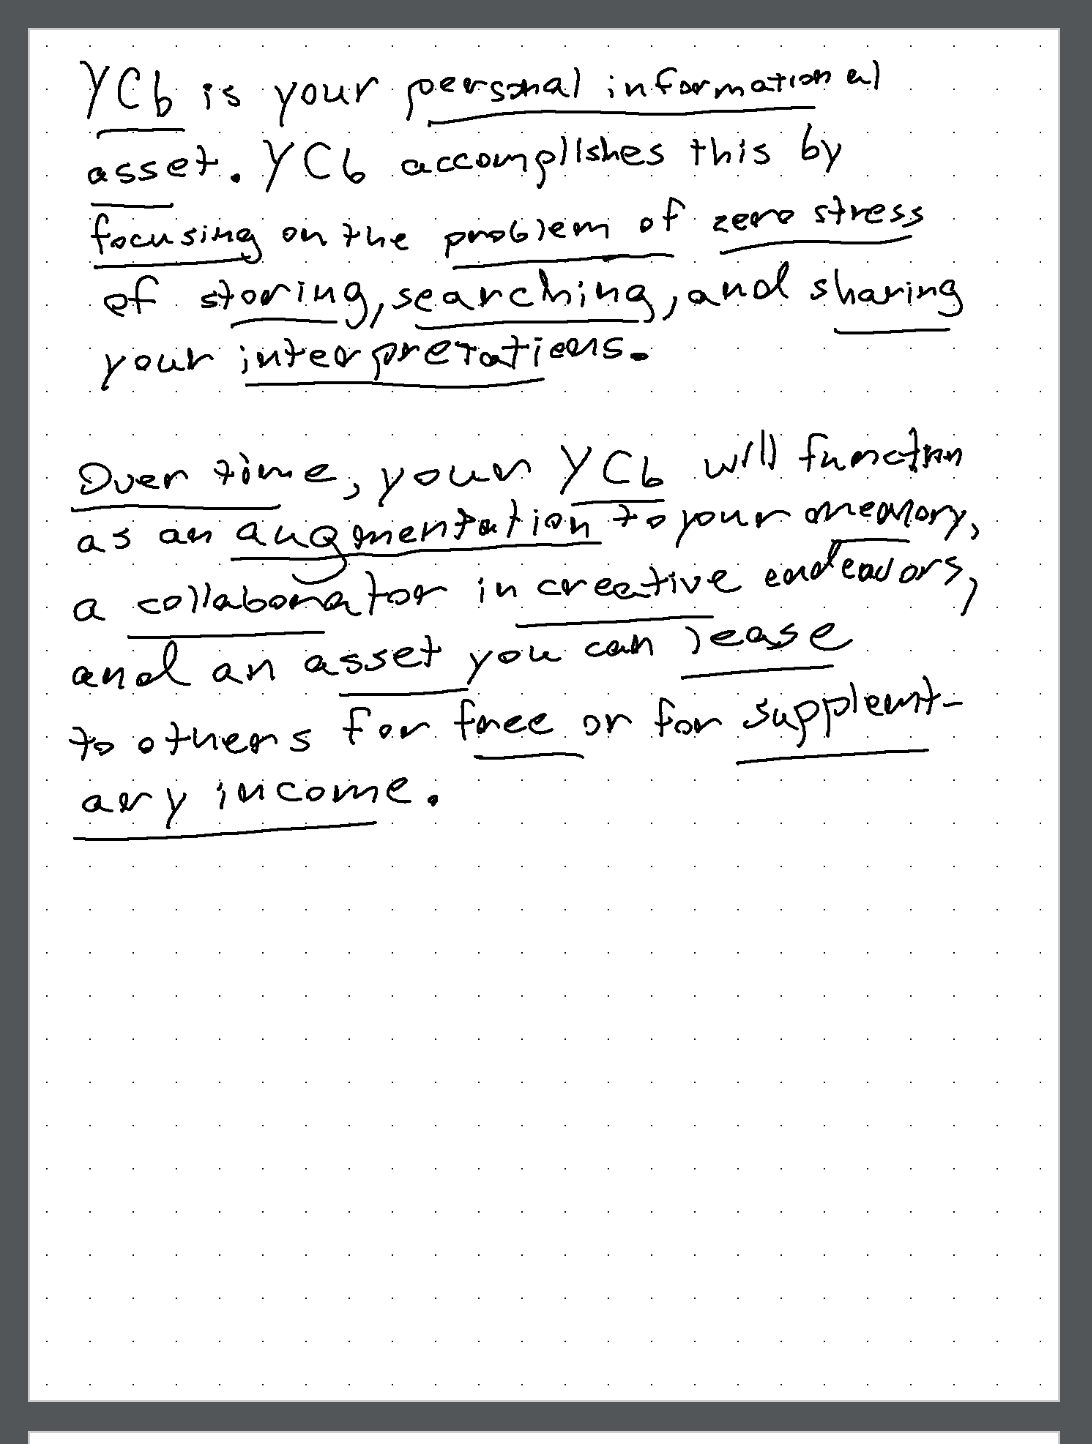 YCb is your personal informational
asset. YCb accomplishes this by
focusing on the problem of zero stress
of storing, searching, and sharing
your interpretations.
Over time, your YCb will function
as an augmentation to your memory,
a collaborator in creative endeavors,
and an asset you can lease
to others for free or for supplemt-
ary income.